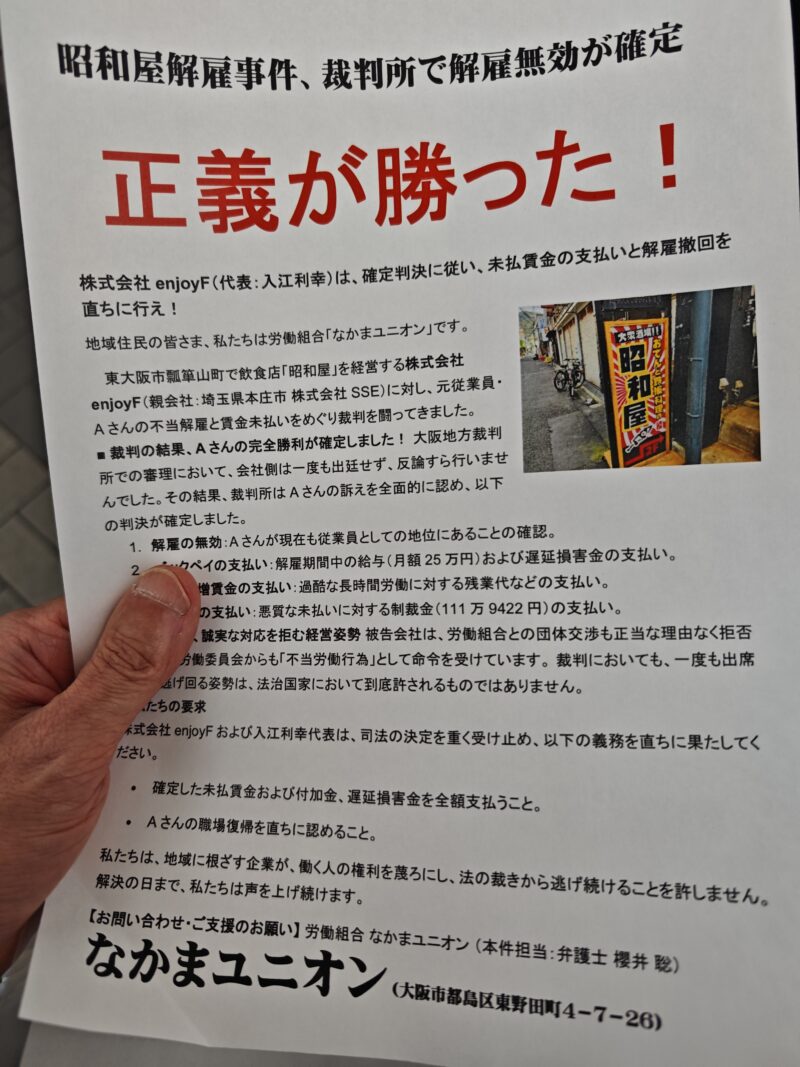 昭和屋解雇事件、裁判所で解雇無効が確定
正義が勝った！
株式会社 enjoyF（代表：入江利幸）は、確定判決に従い、未払賃金の支払いと解雇撤回を
直ちに行え！
地域住民の皆さま、私たちは労働組合「なかまユニオン」です。
東大阪市瓢箪山町で飲食店「昭和屋」を経営する株式会社
enjoyF（親会社：埼玉県本庄市 株式会社 SSE）に対し、元従業員・
Aさんの不当解雇と賃金未払いをめぐり裁判を闘ってきました。
■ 裁判の結果、Aさんの完全勝利が確定しました！ 大阪地方裁判
所での審理において、会社側は一度も出廷せず、反論すら行いませ
んでした。その結果、裁判所は A さんの訴えを全面的に認め、以下
の判決が確定しました。
1. 解雇の無効：Aさんが現在も従業員としての地位にあることの確認。
2. ックペイの支払い：解雇期間中の給与（月額 25 万円）および遅延損害金の支払い。
増賃金の支払い：過酷な長時間労働に対する残業代などの支払い。
の支払い：悪質な未払いに対する制裁金（111 万 9422 円）の支払い。
、誠実な対応を拒む経営姿勢 被告会社は、労働組合との団体交渉も正当な理由なく拒否
労働委員会からも「不当労働行為」として命令を受けています。裁判においても、一度も出席
逃げ回る姿勢は、法治国家において到底許されるものではありません。
たちの要求
株式会社 enjoyF および入江利幸代表は、司法の決定を重く受け止め、以下の義務を直ちに果たしてく
ださい。
• 確定した未払賃金および付加金、遅延損害金を全額支払うこと。
• Aさんの職場復帰を直ちに認めること。
私たちは、地域に根ざす企業が、働く人の権利を蔑ろにし、法の裁きから逃げ続けることを許しません。
解決の日まで、私たちは声を上げ続けます。
【お問い合わせ・ご支援のお願い】労働組合 なかまユニオン（本件担当：弁護士 櫻井 聡）
なかまユニオン（大阪市都島区東野田町4-7-26）
大衆酒場!!
昭和屋
2F